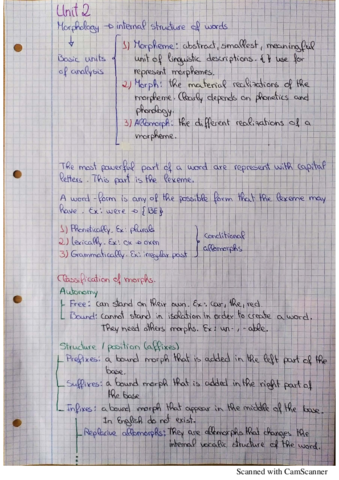 Unit 2
Morphology → internal structure of words
Basic units of analysis
1) Morpheme: abstract, smallest, meaningful
unit of linguistic descriptions. { } use for
represent morphemes.
2) Morph: the material realizations of the
morpheme. Clearly depends on phonetics and
phonology.
3) Allomorph: the different realizations of a
morpheme.
The most powerful part of a word are represent with capital
letters. This part is the lexeme.
A word-form is any of the possible form that the lexeme may
have. Ex: were → {BE}
1) Phonetically. Ex: plurals
2) Lexically. Ex: ox → oxen
3) Grammatically. Ex: irregular past
conditioned
allomorphs
Classification of morphs.
Autonomy
Free: can stand on their own. Ex: car, the, red
Bound: cannot stand in isolation in order to create a word.
They need others morphs. Ex: un-, -able.
Structure / position (affixes)
Prefixes: a bound morph that is added in the left part of the
base.
Suffixes: a bound morph that is added in the right part of
the base
Infixes: a bound morph that appear in the middle of the base.
In English do not exist.
Replacive allomorphs: They are allomorphs that changes the
internal vocalic structure of the word.
Scanned with CamScanner